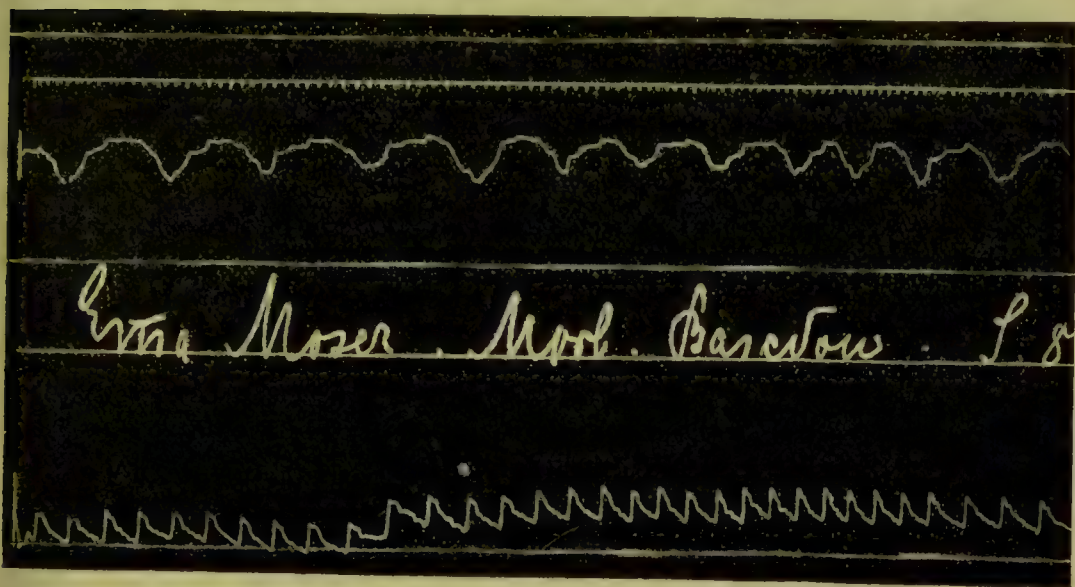 Erna Moser. Morb. Basedow. S. 8